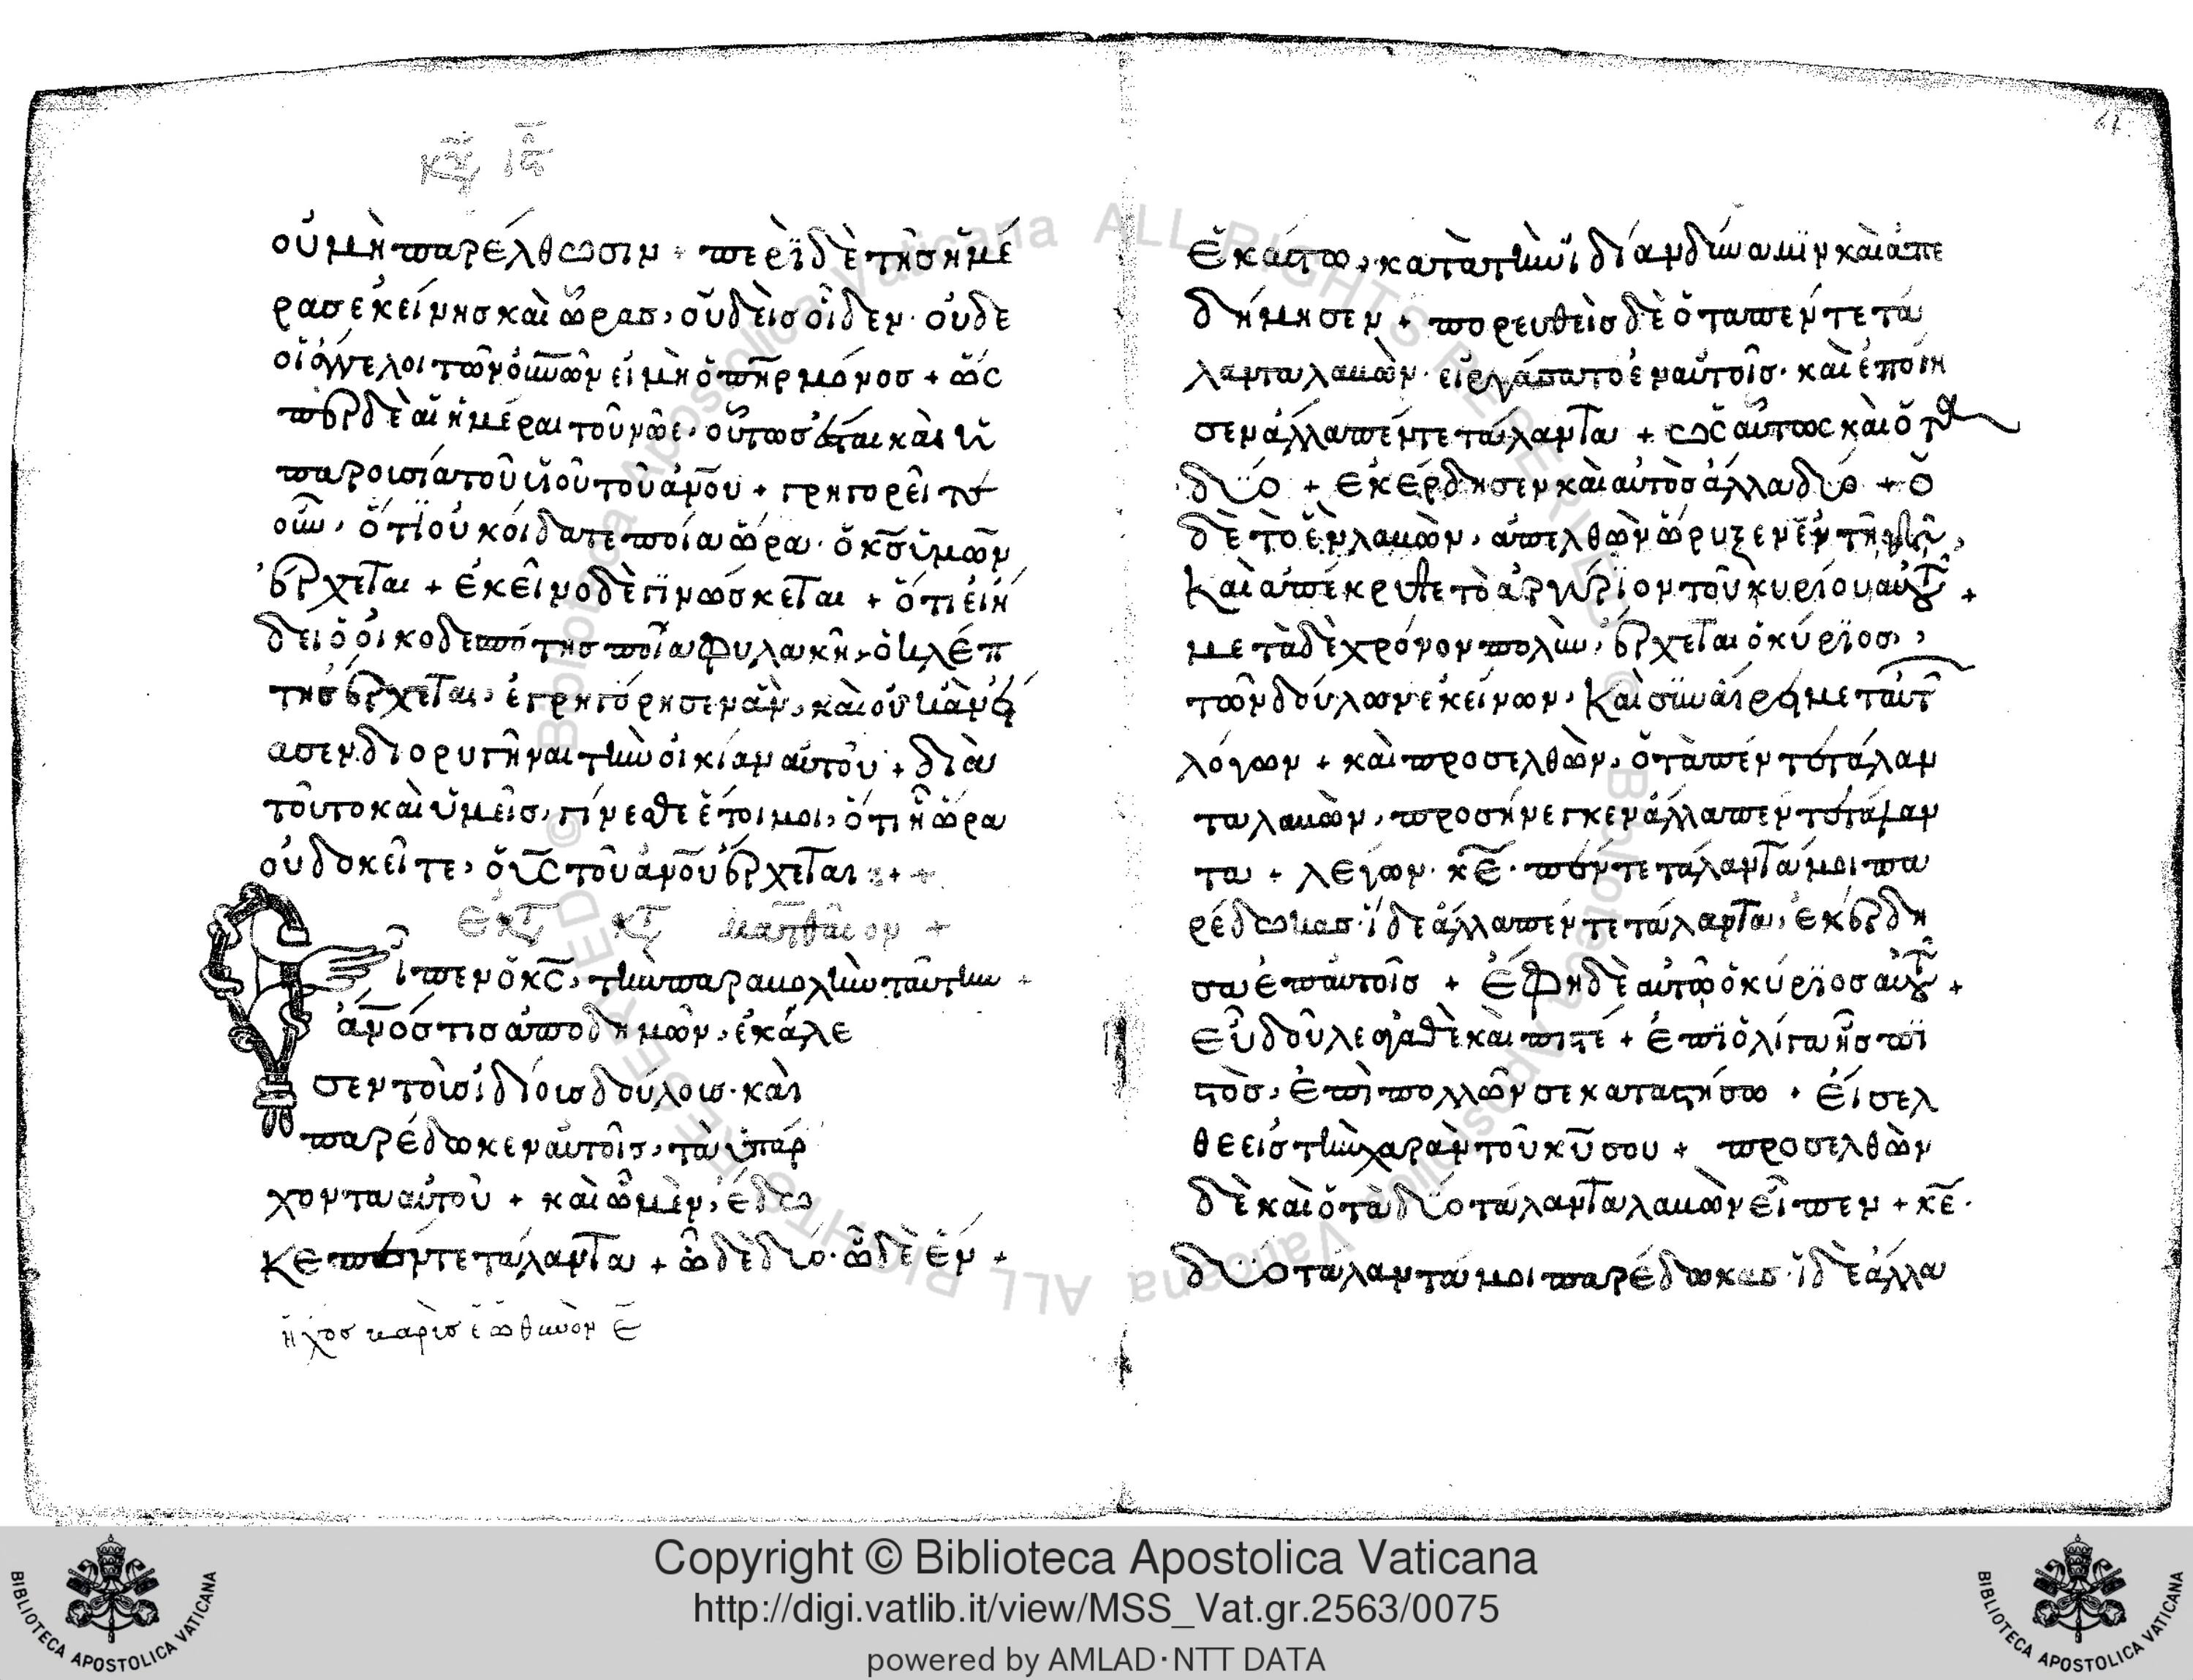 κυ ις
οὐ μὴ παρέλθωσιν + περὶ δὲ τῆσ ἡμέ
ρασ ἐκείνησ καὶ ὥρασ, οὐδεὶσ οἶδεν · οὐδε
οἱ ἄγγελοι τῶν οὐνῶν εἰ μὴ ὁ πηρ μόνοσ + ὥς
περ δὲ αἱ ἡμέραι τοῦ νῶε, οὕτωσ ἔσται καὶ ἡ
παροισία τοῦ υἱοῦ τοῦ ἀνου + γρηγορεῖτε
οὖν, ὅτι οὐκ οἴδατε ποία ὥρα · ὁ κσ ὑμῶν
ἔρχεται + ἐκεῖνο δὲ γινώσκεται + ὅτι εἰ ἤ
δει ὁ οἰκοδεσπότησ ποία φυλακῆ, ὁ κλέπ
τησ ἔρχεται, ἐγρηγόρησεν ἂν, καὶ οὐκ ἂν εἴ
ασεν διορυγῆναι τὴν οἰκίαν αὐτοῦ + διὰ
τοῦτο καὶ ὑμεῖσ, γίνεσθε ἕτοιμοι, ὅτι ἧ ὥρα
οὐ δοκεῖτε, ὁ υς τοῦ ἀνου ἔρχεται :+ +
ἐκ τ κτ ματθαῖον +
Εἶπεν ὁ κς, τὴν παραβολὴν ταύτην +
ἀνοσ τισ ἀποδημῶν, ἐκάλε
σεν τοὶσ ἰδίοισ δούλοισ · καὶ
παρέδωκεν αὐτοῖσ, τὰ ὑπάρ
χοντα αὐτοῦ + καὶ ὧ μὲν, ἔδω
κε πέντε τάλαντα + ὧ δὲ δύο · ὧ δὲ ἕν +
ἦχοσ βαρὶσ ἑωθινὸν ε
67
ἑκάστω, κατὰ τὴν ἰδίαν δύναμιν καὶ ἀπε
δήμησεν + πορευθεὶσ δὲ ὁ τα πέντε τά
λαντα λαβὼν · εἰργάσατο ἐν αὐτοῖσ · καὶ ἐποίη
σεν ἄλλα πέντε τάλαντα + ὡς αὔτως καὶ ὁ τὰ
δύο + ἐκέρδησεν καὶ αὐτὸσ ἄλλα δύο + ὁ
δὲ τὸ ἓν λαβὼν, ἀπελθὼν ὤρυξεν ἐν τῆ γῆ,
καὶ ἀπέκρυψε τὸ ἀργύριον τοῦ κυρίου αὐτοῦ +
μετὰ δὲ χρόνον πολὺν, ἔρχεται ὁ κύριοσ,
τῶν δούλων ἐκείνων, καὶ συναίρει μετ αὐτ
λόγων + καὶ προσελθὼν, ὁ τὰ πέντε τάλαν
τα λαβὼν, προσήνεγκεν ἄλλα πέντε τάλαν
τα + λέγων · κε · πέντε τάλαντά μοι πα
ρέδωκασ · ἴδε ἄλλα πέντε τάλαντα, ἐκέρδη
σα ἐπ αὐτοῖσ + ἔφη δὲ αὐτῶ ὁ κύριοσ αὐτοῦ +
εὖ δοῦλε ἀγαθὲ καὶ πιστέ + ἐπὶ ὀλίγα ἦσ πι
στὸσ, ἐπὶ πολλῶν σε καταστήσω + εἴσελ
θε εἰσ τὴν χαρὰν τοῦ κυ σου + προσελθὼν
δὲ καὶ ὁ τὰ δύο τάλαντα λαβὼν εἶπεν + κε ·
δύο τάλαντά μοι παρέδωκασ · ἴδὲ ἄλλα
Copyright © Biblioteca Apostolica Vaticana
http://digi.vatlib.it/view/MSS_Vat.gr.2563/0075
powered by AMLAD·NTT DATA
BIBLIOTECA APOSTOLICA VATICANA
BIBLIOTECA APOSTOLICA VATICANA